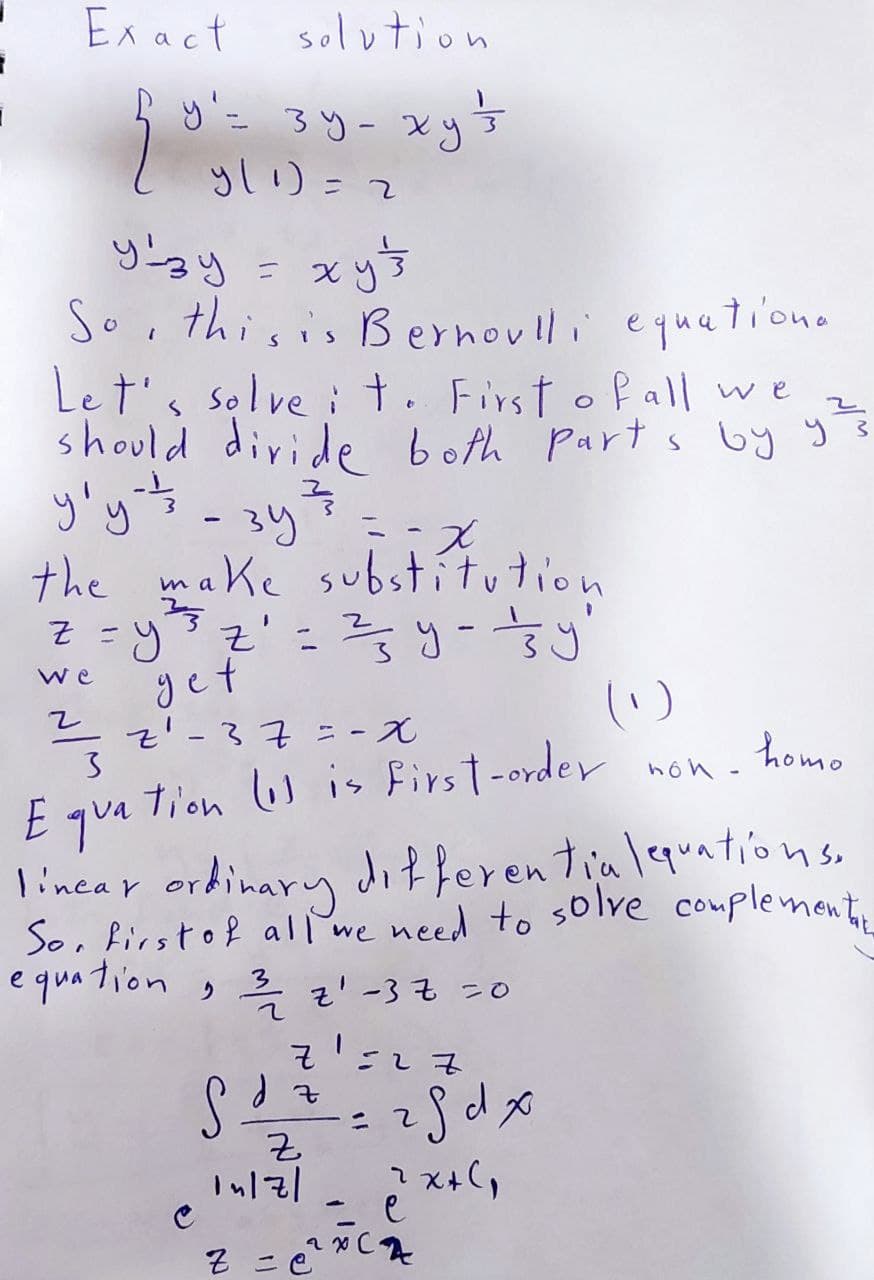 Exact solution
{ y' = 3y - xy^{1/3}
y(1) = 2
y' - 3y = xy^{1/3}
So, this is Bernoulli equation.
Let's solve it. First of all we
should divide both parts by y^{2/3}
y'y^{-1/3} - 3y^{2/3} = -x
the make substitution
z = y^{2/3} z' = 2/3 y - 1/3 y'
we get
2/3 z' - 3z = -x (1)
Equation (1) is first-order non-homo
linear ordinary differential equations.
So, first of all we need to solve complementary
equation, 3/2 z' - 3z = 0
z' = 2z
∫ dz/z = 2∫dx
e^{ln|z|} = e^{2x+C_1}
z = e^{2x}C_2